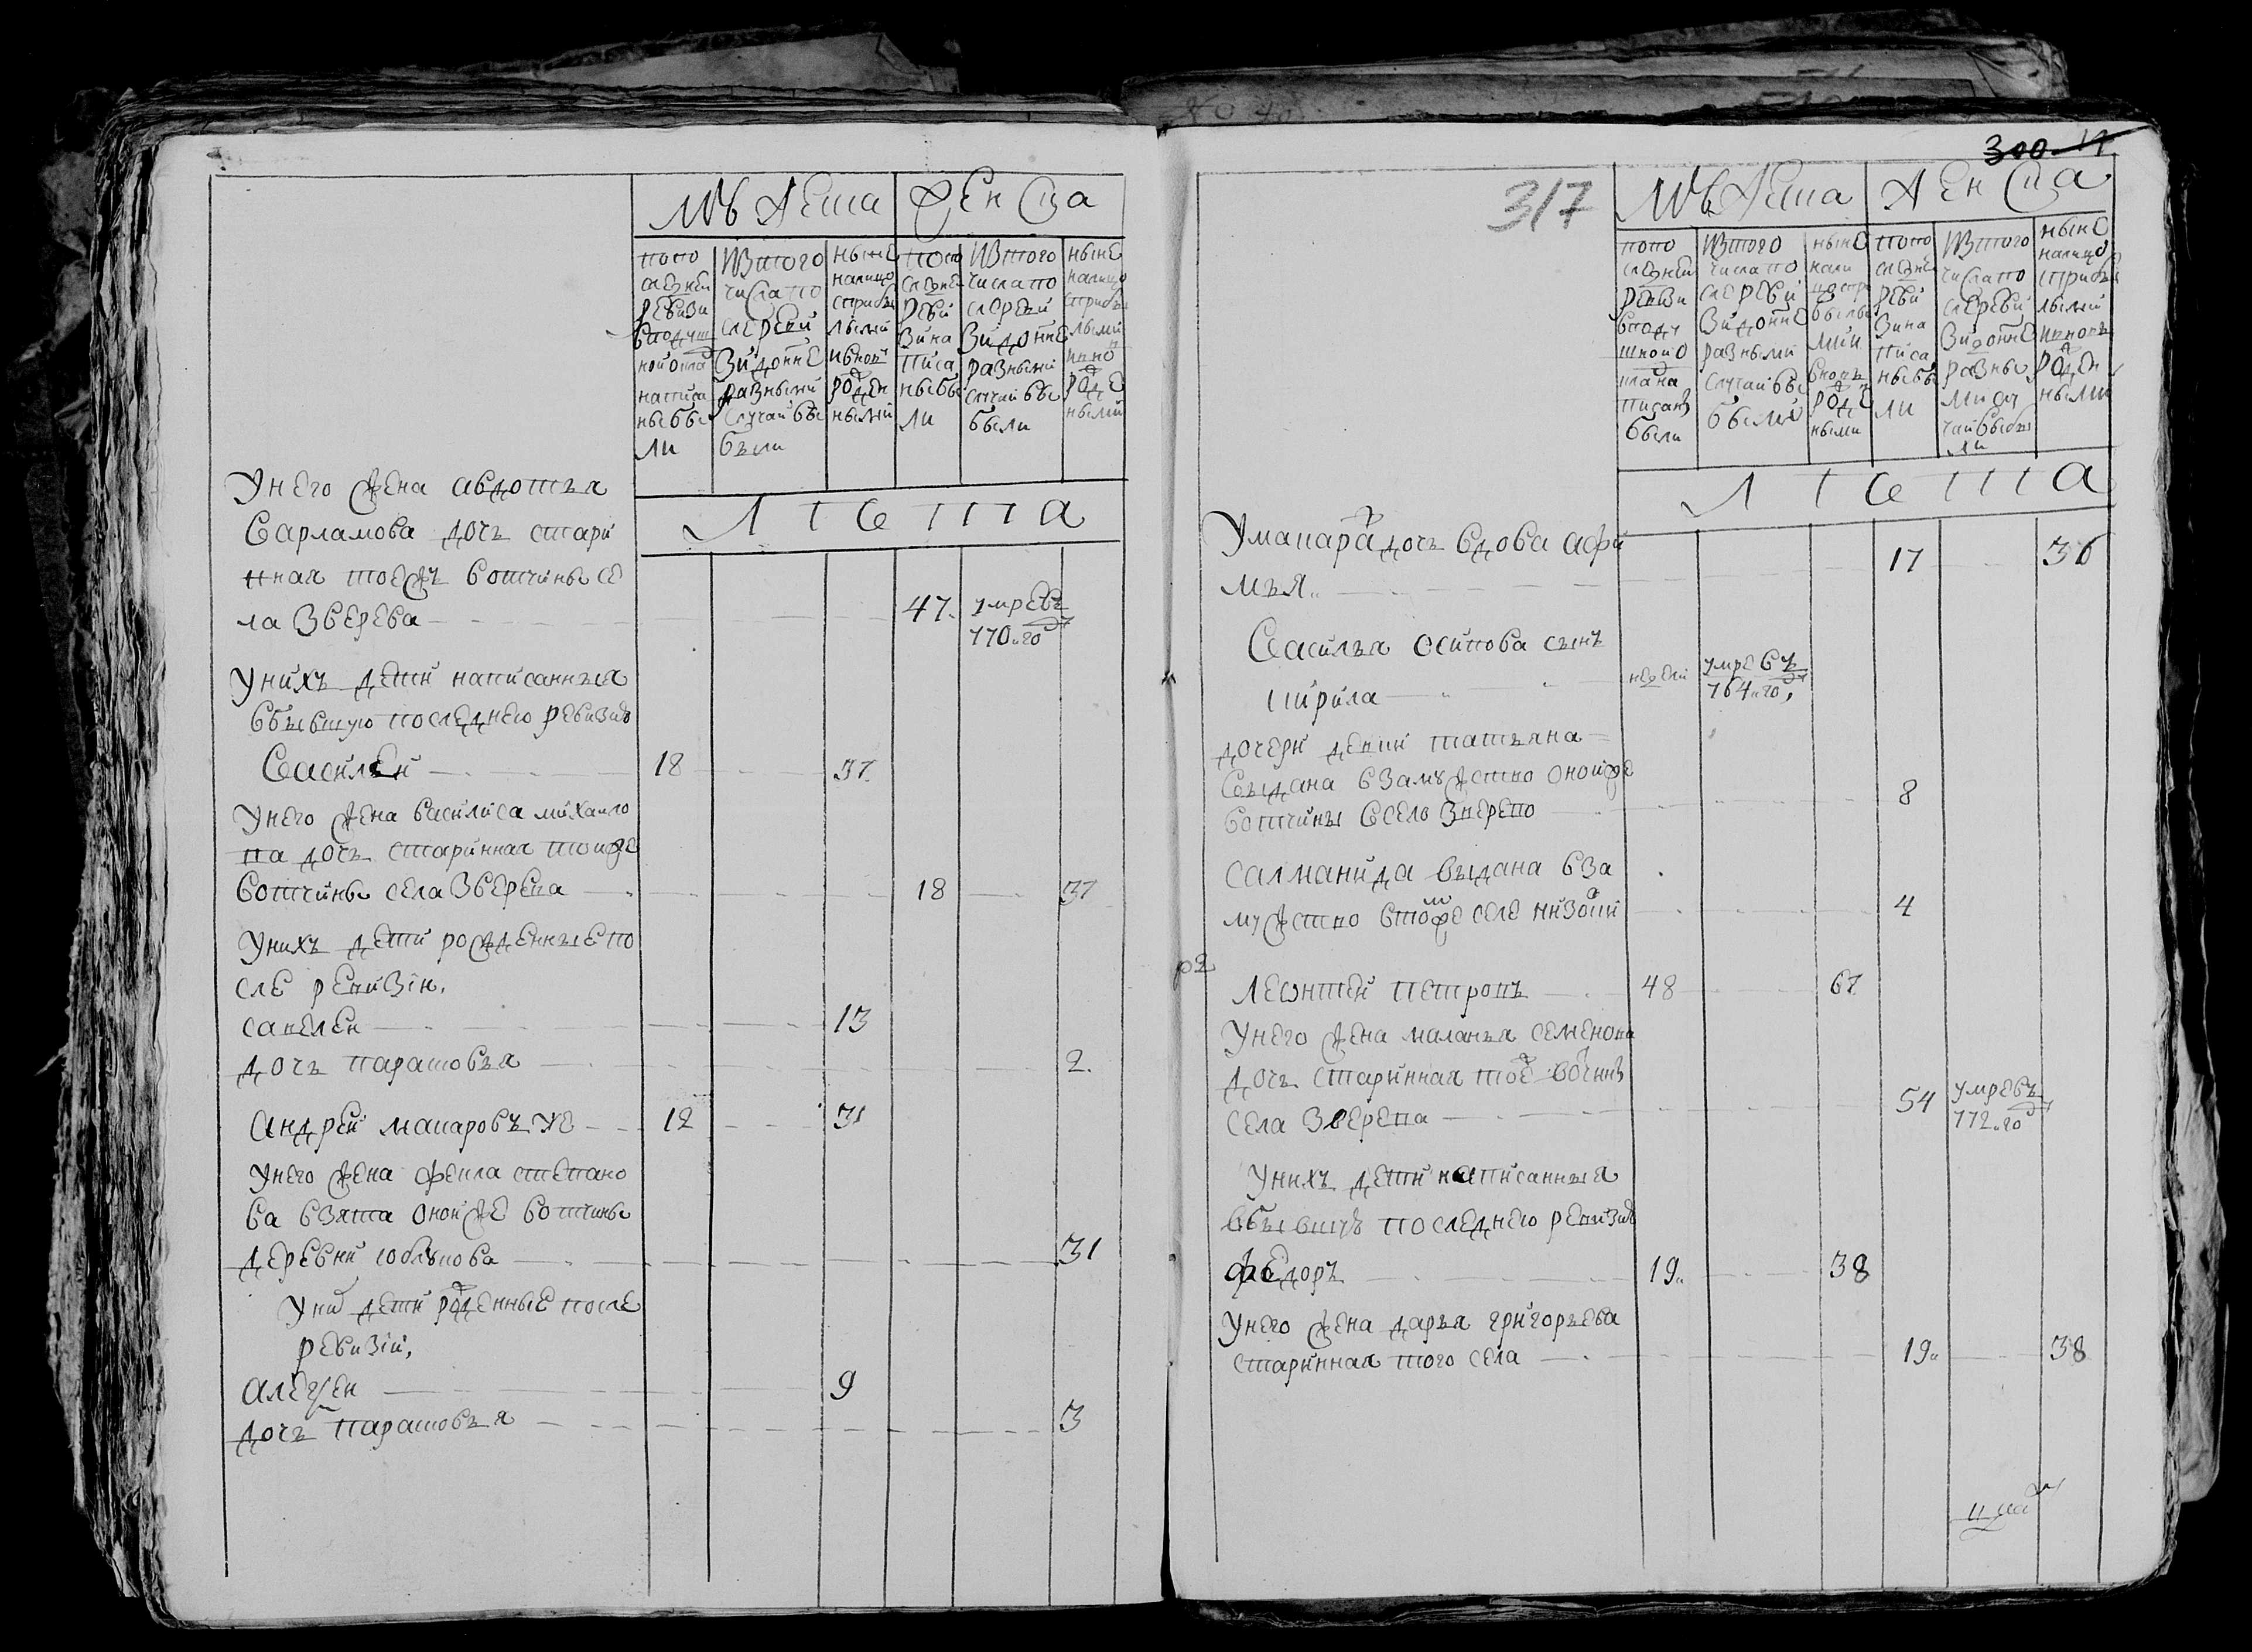 Мужеска
Женска
попо
следней
ревизи
вподуш
ной окла
написа
ны бы
ли
Изтого
числа по
сле реви
зи до ны не
разными
случаи вы
были
ныне
налицо
сприбы
лыми
и вновь
рожден
ными
попо
следне
реви
зи на
писа
ны бы
ли
Изтого
числа по
сле реви
зи до ны не
разными
случаи вы
были
ныне
налицо
сприбы
лыми
и вно
рожде
ными
Лета
У него жена авдотья
варламова дочь стари
нная тоежъ вотчины се
ла Зверева 47. умре въ
770 го
У нихъ дети написанныя
в бывшую последнею ревизию
Василей 18 37.
У него жена василиса михаило
ва дочь старинная тоиже
вотчины села Зверева 18 37
У нихъ дети рожденные по
сле ревизiи.
савелей 13
дочь парасковья 2.
андрей макаровъ же 12 31
У него жена фекла степано
ва взята оной же вотчины
деревни
31
У ни дети роженные после
ревизiи,
алексей 9
дочь парасковья 3
300
317
Мужеска
Женска
попо
следней
ревизи
вподу
шной о
клад на
писаны
были
Изтого
числа по
сле реви
зи до ны не
разными
случаи вы
были
ныне
нали
цо спри
былы
ми и
вновь
рожде
ными
попо
следне
реви
зи на
писа
ны бы
ли
Изтого
числа по
сле реви
зи до ны не
разны
ми слу
чаи выбы
ли
ныне
налицо
сприбы
лыми
и вновь
рожден
ными
Лета
У макара дочь вдова афи
мья 17 36
Василья осипова сынъ
кирила недели умре въ
764 го,
дочери девки татьяна
выдана в замужство оной же
вотчины в село Зверево 8
салманида выдана в за
мужство в томже селе 4
Леонтей петровъ 48 67
У него жена маланья семенова
дочь старинная тоежъ вотчины
села Зверева 54 умре въ
772 го
У нихъ дети написанныя
в бывшую последнею ревизию
федоръ 19 38
У него жена дарья григорьева
старинная того села 19 38